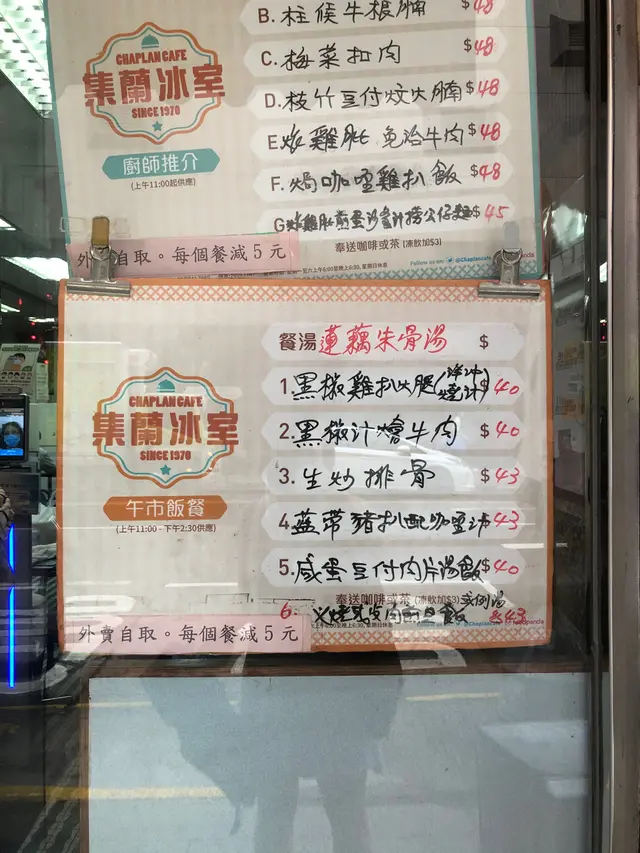 CHAPLAN CAFE
集蘭冰室
SINCE 1970
廚師推介
(上午11:00起供應)
B. 柱侯牛根腩 $48
C. 梅菜扣肉 $48
D. 枝竹豆付炆火腩 $48
E 炸雞肶 免治牛肉 $48
F. 焗咖喱雞扒飯 $48
G 炸雞肶煎蛋沙爹汁撈公仔麵 $45
奉送咖啡或茶 (凍飲加$3)
Follow us on: @Chaplancafe
外賣自取。每個餐減5元
CHAPLAN CAFE
集蘭冰室
SINCE 1970
午市飯餐
(上午11:00 - 下午2:30供應)
餐湯 蓮藕朱骨湯 $
1. 黑椒雞扒火腿 $40
2. 黑椒汁燴牛肉 $40
3. 生炒排骨 $43
4. 藍帶豬扒配咖喱汁 43
5. 咸蛋豆付肉片湯飯 $40
奉送咖啡或茶 (凍飲加$3) 或例湯
6. $43
外賣自取。每個餐減5元